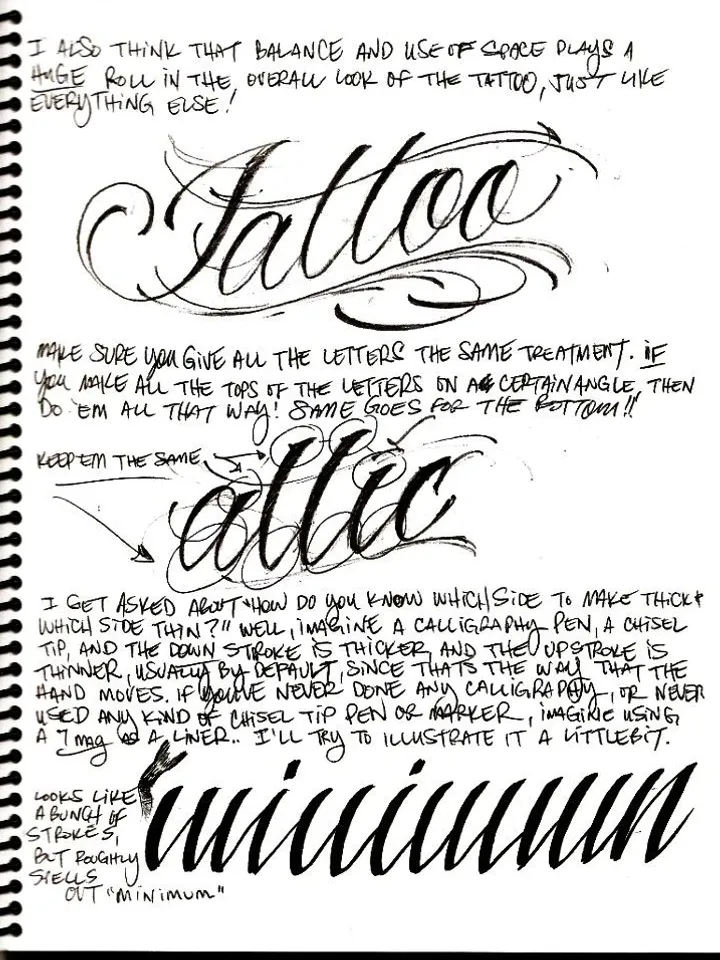 I ALSO THINK THAT BALANCE AND USE OF SPACE PLAYS A
HUGE ROLL IN THE, OVERALL LOOK OF THE TATTOO, JUST LIKE
EVERYTHING ELSE!
Tattoo
MAKE SURE YOU GIVE ALL THE LETTERS THE SAME TREATMENT. IF
YOU MAKE ALL THE TOPS OF THE LETTERS ON A CERTAIN ANGLE, THEN
DO 'EM ALL THAT WAY! SAME GOES FOR THE BOTTOM!!
KEEP EM THE SAME
allic
I GET ASKED ABOUT "HOW DO YOU KNOW WHICH SIDE TO MAKE THICK &
WHICH SIDE THIN?" WELL, IMAGINE A CALLIGRAPHY PEN, A CHISEL
TIP, AND THE DOWN STROKE IS THICKER, AND THE UPSTROKE IS
THINNER, USUALLY BY DEFAULT, SINCE THATS THE WAY THAT THE
HAND MOVES. IF YOU'VE NEVER DONE ANY CALLIGRAPHY, OR NEVER
USED ANY KIND OF CHISEL TIP PEN OR MARKER, IMAGINE USING
A 7 mag AS A LINER.. I'LL TRY TO ILLUSTRATE IT A LITTLEBIT.
LOOKS LIKE
A BUNCH OF
STROKES,
BUT ROUGHLY
SPELLS
OUT "MINIMUM"
minimum